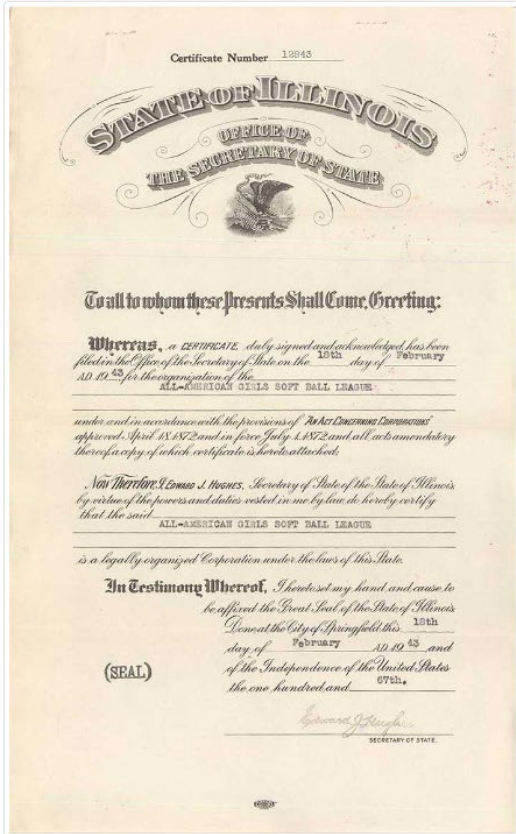 Certificate Number 12843
STATE OF ILLINOIS
OFFICE OF
THE SECRETARY OF STATE
To all to whom these Presents Shall Come, Greeting:
Whereas, a CERTIFICATE duly signed and acknowledged, has been
filed in the Office of the Secretary of State on the 18th day of February
A.D. 19 43 for the organization of the
ALL-AMERICAN GIRLS SOFT BALL LEAGUE
under and in accordance with the provisions of "AN ACT CONCERNING CORPORATIONS"
approved April 18, 1872 and in force July 1, 1872 and all acts amendatory
thereof a copy of which certificate is hereto attached;
Now Therefore, I, EDWARD J. HUGHES, Secretary of State of the State of Illinois,
by virtue of the powers and duties vested in me by law, do hereby certify
that the said
ALL-AMERICAN GIRLS SOFT BALL LEAGUE
is a legally organized Corporation under the laws of this State.
In Testimony Whereof, I hereto set my hand and cause to
be affixed the Great Seal of the State of Illinois
Done at the City of Springfield this 18th
day of February A.D. 19 43 and
(SEAL) of the Independence of the United States
the one hundred and 67th.
Edward J Hughes
SECRETARY OF STATE.